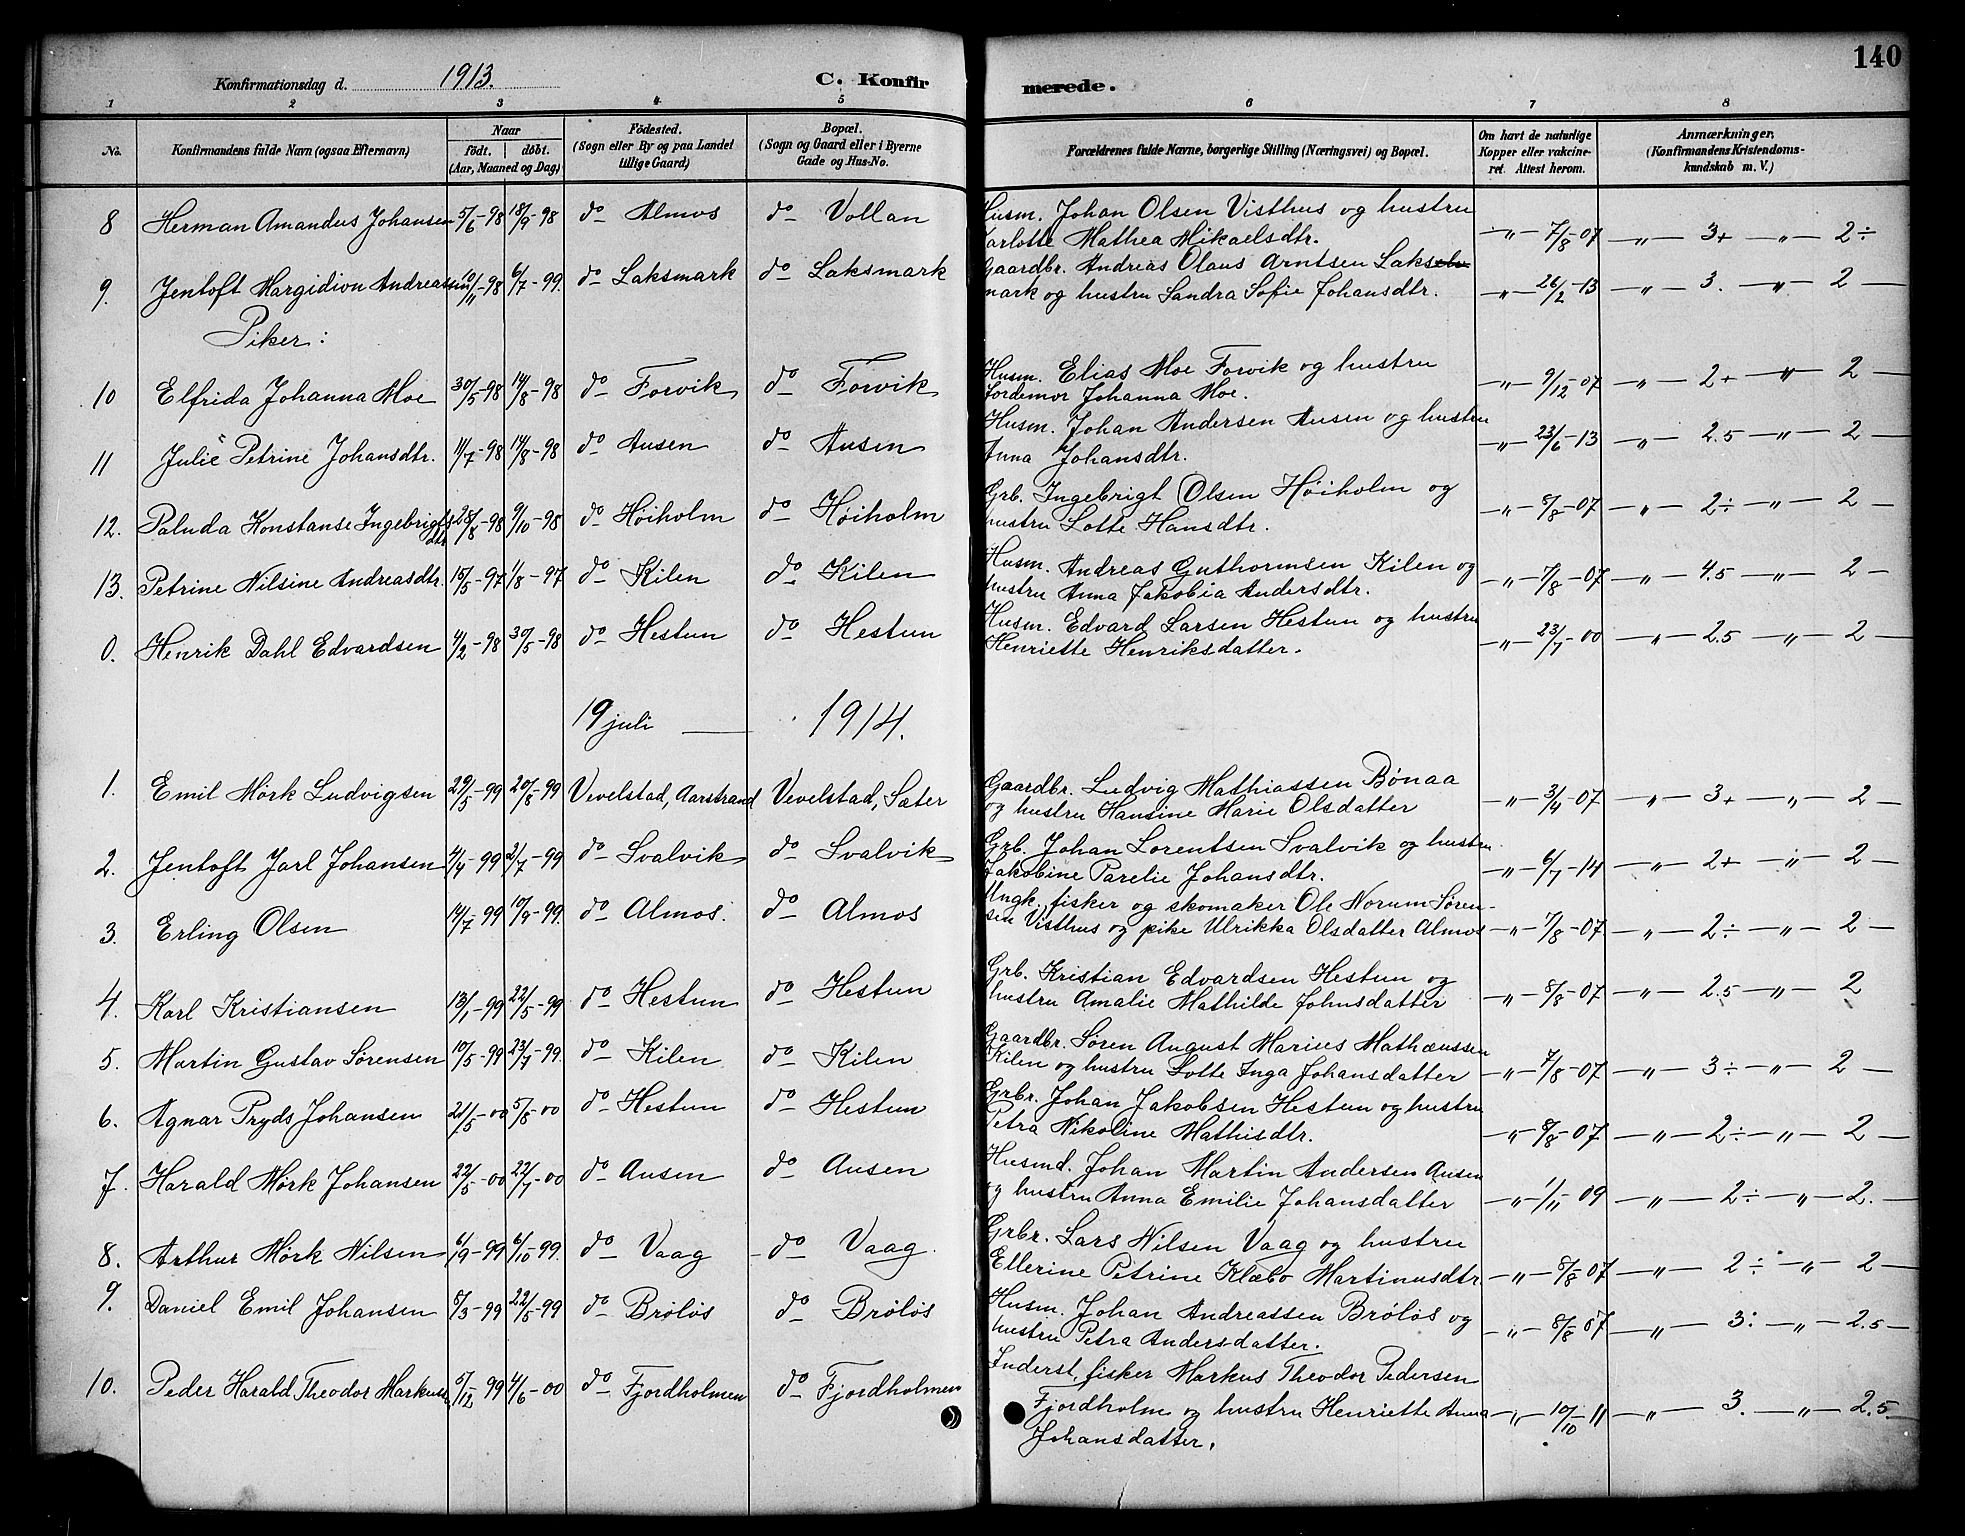 140
Konfirmationsdag d. 1913. C. Konfirmerede.
1 2 3 4 5 6 7 8
No. Konfirmandens fulde Navn (ogsaa Efternavn) Naar født. døbt. (Aar, Maaned og Dag) Födested. (Sogn eller By og paa Landet tillige Gaard) Bopæl. (Sogn og Gaard eller i Byerne Gade og Hus-No. Forældrenes fulde Navne, borgerlige Stilling (Næringsvei) og Bopæl. Om havt de naturlige Kopper eller vakcineret. Attest herom. Anmærkninger. (Konfirmandens Kristendomskundskab m. V.)
8 Herman Amandus Johansen 5/6-98 18/9-98 do Almos do Vollan Husm. Johan Olsen Visthus og hustru
Karlotte Mathea Mikaelsdtr. —"— 7/8-07 —"— 3+ —"— 2÷
9. Jentoft Margidion Andreassen 10/11-98 6/7-99. do Laksmark do Laksmark Gaardbr. Andreas Olaus Arntsen Laks
mark og hustru Sandra Sofie Johansdtr. —"— 26/2-13 —"— 3. —"— 2 —
Piker:
10 Elfrida Johanna Moe 30/5-98 14/8-98 do Forvik do Forvik Husm. Elias Moe Forvik og hustru
Jordemor Johanna Moe. —"— 9/12-07 —"— 2+ —"— 2 —
11 Julie Petrine Johansdtr. 11/7-98 14/8-98 do Ausen do Ausen Husm. Johan Andersen Ausen og hustru
Anna Johansdtr. —"— 23/6-13 —"— 2.5 —"— 2 —
12. Paluda Konstanse Ingebrigtsdtr 28/8-98 9/10-98 do Høiholm do Høiholm Grb. Ingebrigt Olsen Høiholm og
hustru Lotte Hansdtr. —"— 8/8-07 —"— 2÷ —"— 2 —
13. Petrine Nilsine Andreasdtr. 15/5-97 1/8-97 do Kilen do Kilen Husm. Andreas Guthormsen Kilen og
hustru Anna Jakobia Andersdtr. —"— 7/8-07 —"— 4.5 —"— 2 —
0. Henrik Dahl Edvardsen 4/2-98 30/5-98 do Hestun do Hestun Husm. Edvard Larsen Hestun og hustru
Henriette Henriksdatter. —"— 23/7-00 —"— 2.5 —"— 2 —
19 juli — 1914.
1. Emil Mörk Ludvigsen 29/5-99 20/8-99 Vevelstad, Aarstrand Vevelstad, Sæter Gaardbr. Ludvig Mathiassen Bönaa
og hustru Hansine Marie Olsdatter —"— 3/4-07 —"— 3+ —"— 2 —
2. Jentoft Jarl Johansen 4/4-99 2/7-99 do Svalvik do Svalvik Grb. Johan Lorentsen Svalvik og hustru
Jakobine Parelie Johansdtr. —"— 6/7-14 —"— 2+ —"— 2 —
3. Erling Olsen 14/7-99 10/9-99. do Almos. do Almos Ungk., fisker og skomaker Ole Norum Sören-
sen Visthus og pike Ulrikka Olsdatter Almos —"— 7/8-07. —"— 2÷ —"— 2 —
4. Karl Kristiansen 13/1-99 22/5-99 do Hestun do Hestun Grb. Kristian Edvardsen Hestun og
hustru Amalie Mathilde Johnsdatter —"— 8/8-07 —"— 2.5 —"— 2
5. Martin Gustav Sörensen 10/5-99 23/7-99. do Kilen do Kilen Gaardbr. Sören August Marius Mathæussen
Kilen og hustru Lotte Inga Johansdatter —"— 7/8-07 —"— 3÷ —"— 2 —
6. Agnar Pryds Johansen 21/5-00 5/8-00 do Hestun do Hestun Grbr. Johan Jakobsen Hestun og hustru
Petra Nikoline Mathisdtr. —"— 8/8-07 —"— 2÷ —"— 2 —
7. Harald Mörk Johansen 22/5-00 22/7-00 do Ausen do Ausen Husmd. Johan Martin Andersen Ausen
og hustru Anna Emilie Johansdatter —"— 1/11 09 —"— 2÷ —"— 2. —
8. Arthur Mörk Nilsen 6/9-99 6/10 99. do Vaag do Vaag. Grbr. Lars Nilsen Vaag og hustru
Ellerine Petrine Klæbo Martinusdtr —"— 8/8-07 —"— 2÷ —"— 2 —
9. Daniel Emil Johansen 5/3-99 22/5-99 do Brölös do Brölös Husm. Johan Andreassen Brölös og
hustru Petra Andersdatter. —"— 8/8-07 —"— 3÷ —"— 2.5 —
10. Peder Harald Theodor Markuss. 5/12 99 4/6-00 do Fjordholmen do Fjordholmen Inderst, fisker Markus Theodor Pedersen
Fjordholm og hustru Henriette Anna —"— 10/10-11 —"— 3. —"— 2.5 —
Johansdatter.